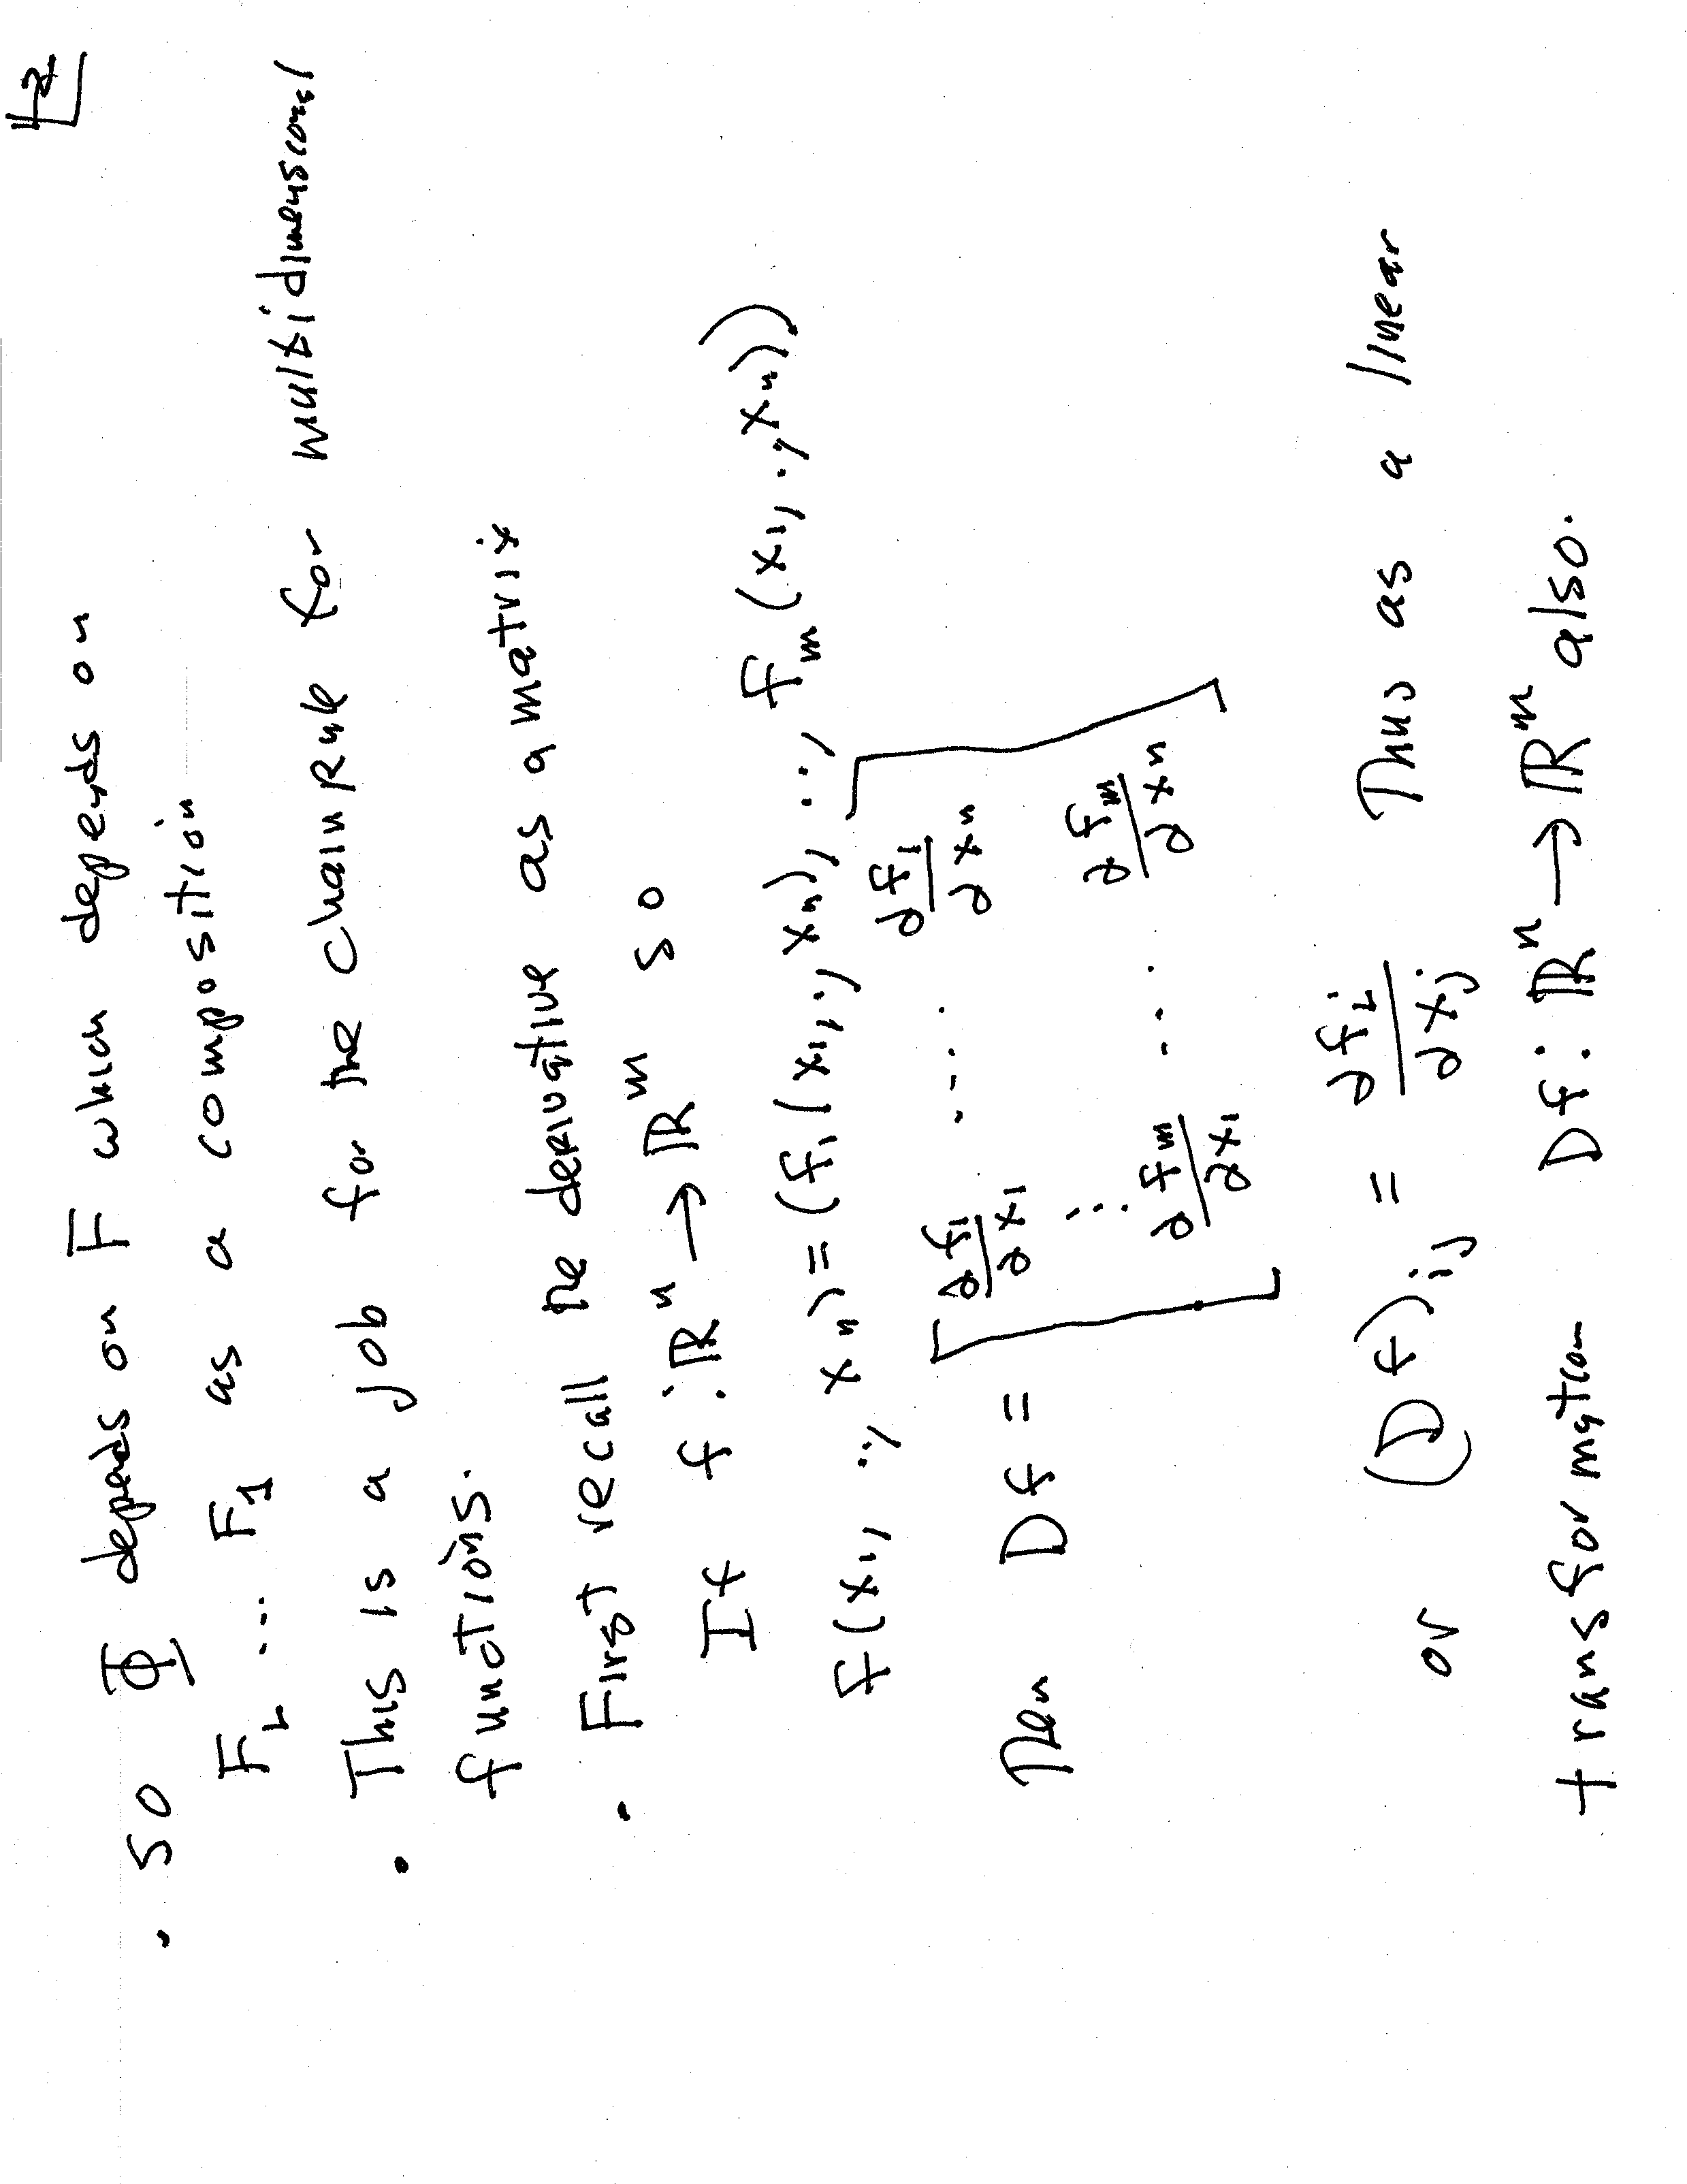 2
• So Φ depends on F which depends on
F_L ... F_1 as a composition
• This is a job for the chain Rule for multidimensional
functions.
• First recall the derivative as a matrix
If f : ℝ^n → ℝ^m so
f(x_1, .., x_n) = (f_1(x_1, .., x_n), .., f_m(x_1, .., x_n))
Then Df = [ ∂f_1/∂x_1 .... ∂f_1/∂x_n
⋮
∂f_m/∂x_1 .... ∂f_m/∂x_n ]
or (Df)_ij = ∂f_i/∂x_j Thus as a linear
transformation Df : ℝ^n → ℝ^m also.